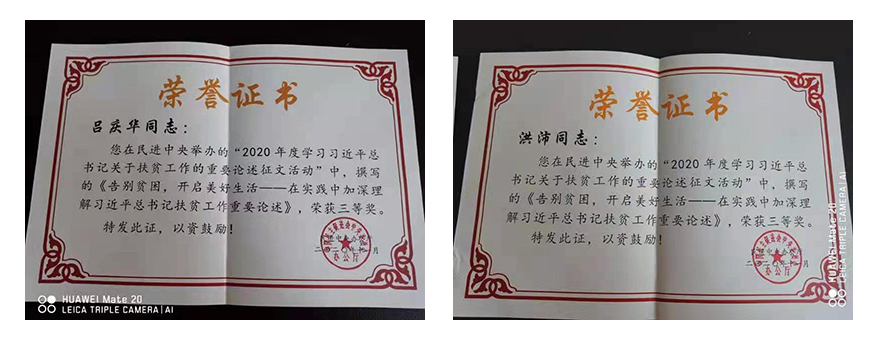 荣誉证书
吕庆华同志：
您在民进中央举办的“2020年度学习习近平总
书记关于扶贫工作的重要论述征文活动”中，撰写
的《告别贫困，开启美好生活——在实践中加深理
解习近平总书记扶贫工作重要论述》，荣获三等奖。
特发此证，以资鼓励！
办公厅
HUAWEI Mate 20
LEICA TRIPLE CAMERA | AI
荣誉证书
洪沛同志：
您在民进中央举办的“2020年度学习习近平总
书记关于扶贫工作的重要论述征文活动”中，撰写
的《告别贫困，开启美好生活——在实践中加深理
解习近平总书记扶贫工作重要论述》，荣获三等奖。
特发此证，以资鼓励！
办公厅
HUAWEI Mate 20
LEICA TRIPLE CAMERA | AI